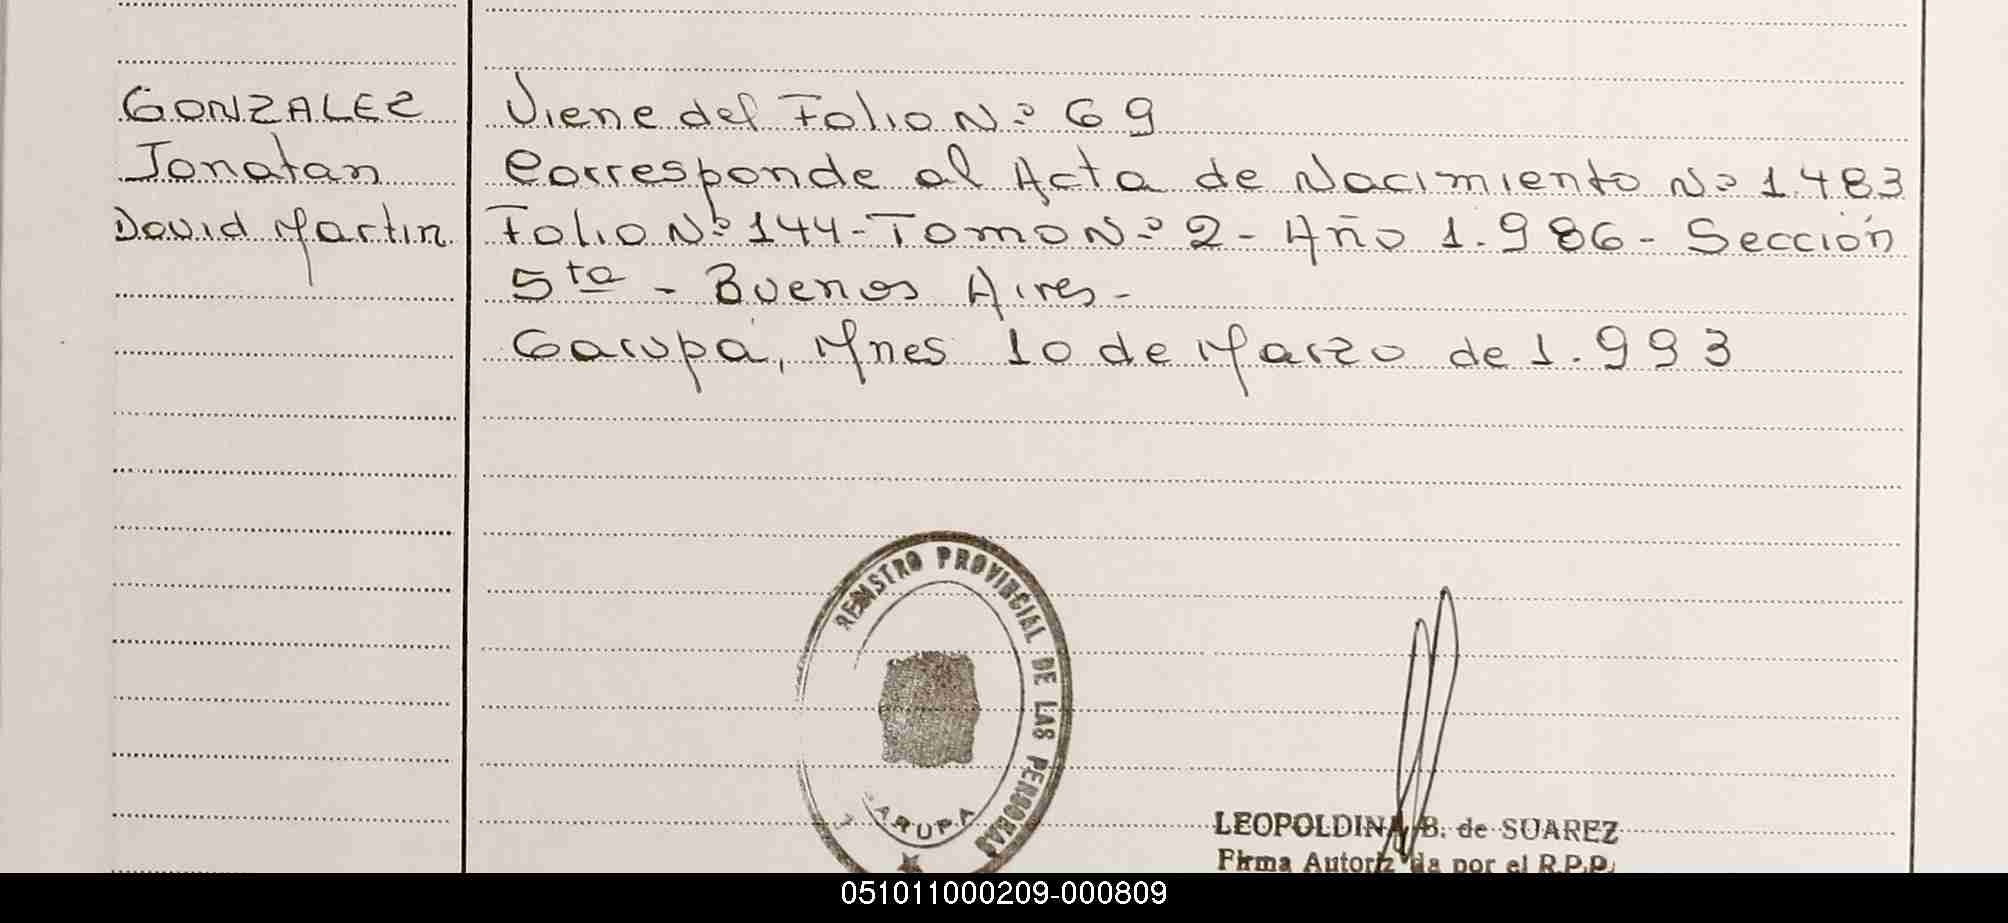 GONZALEZ
Jonatan
David Martin
Viene del Folio Nº 69
Corresponde al Acta de Nacimiento Nº 1.483
Folio Nº 144 - Tomo Nº 2 - Año 1.986 - Sección
5ta - Buenos Aires -
Garupá, Mnes 10 de Marzo de 1.993
REGISTRO PROVINCIAL DE LAS PERSONAS
ARUPA
LEOPOLDINA B. de SUAREZ
Firma Autorizada por el R.P.P.
051011000209-000809